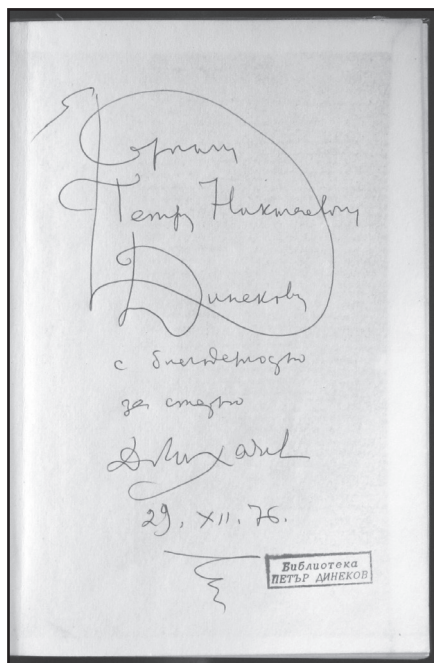 Дорогому
Петру Николаевичу
Динекову
с благодарностью
за статью
Д Лихачев
29. XII. 76.
Библиотека
ПЕТЪР ДИНЕКОВ